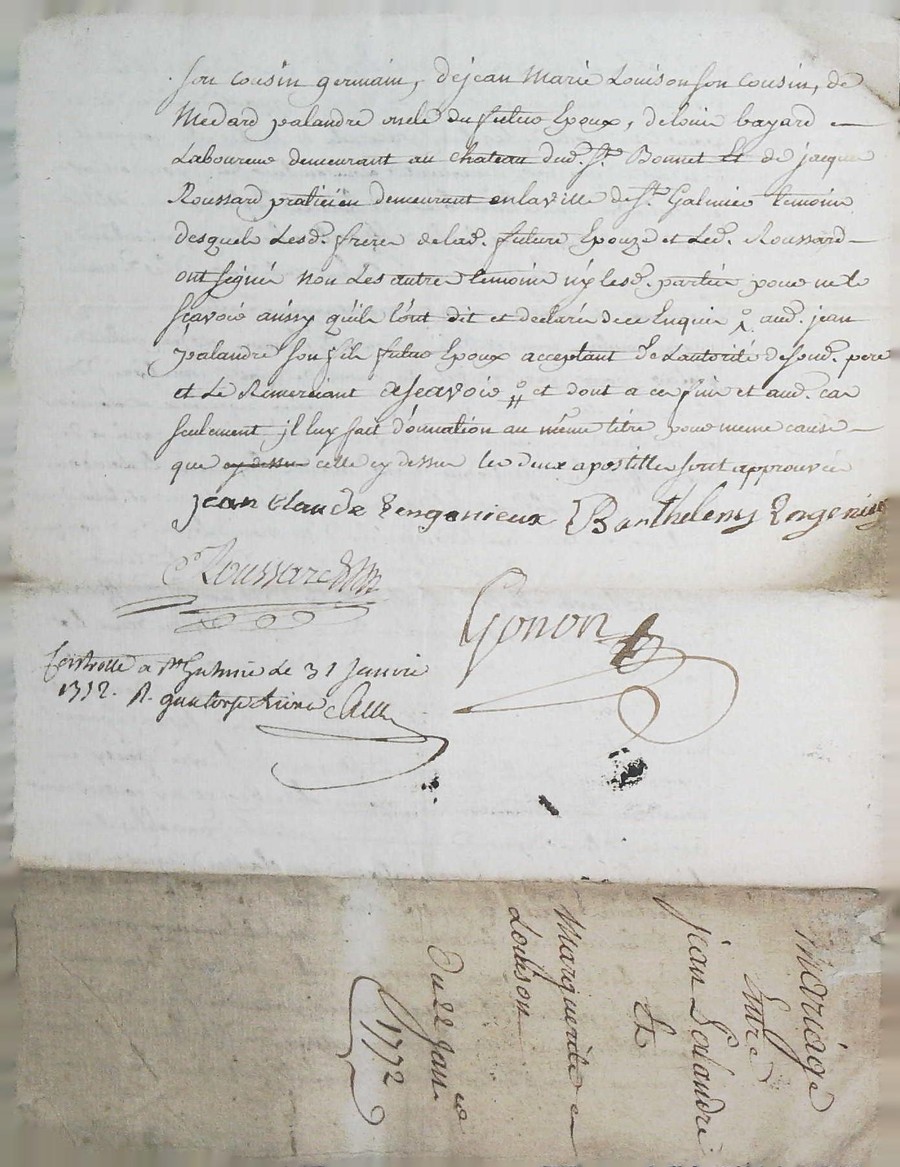 son cousin germain, de jean Marie Louison son cousin, de
Medard palandre oncle du futur Epoux, de louis bayard
Laboureur demeurant au chateau dud. St. Bonnet Et de jacques
Roussard praticien demeurant en la ville de St. Galmier temoins
desquels Lesd. freres de lad. future Epouze et Led. Roussard
ont signé non Les autres temoins ny lesd. parties pour ne le
sçavoir aussy quils l'ont dit et declarés de ce Enquis aud. jean
palandre son fils futur Epoux acceptant de L'autorité de sond. pere
et Le Remerciant et dont a ces fins et aud. cas
seulement, il luy fait d'onnation au même titre pour meme cause
que cy dessus celle cy dessus les deux apostilles sont approuvées
jean Claude Zengenieux Barthelemy
Roussard
Gonon
Controllé a St Galmier le 31 Janvier
1772. R. quatorze livres
Mariage
Entre
jean Palandre
Et
Marguerite
Louison
Du 22 Janv
1772